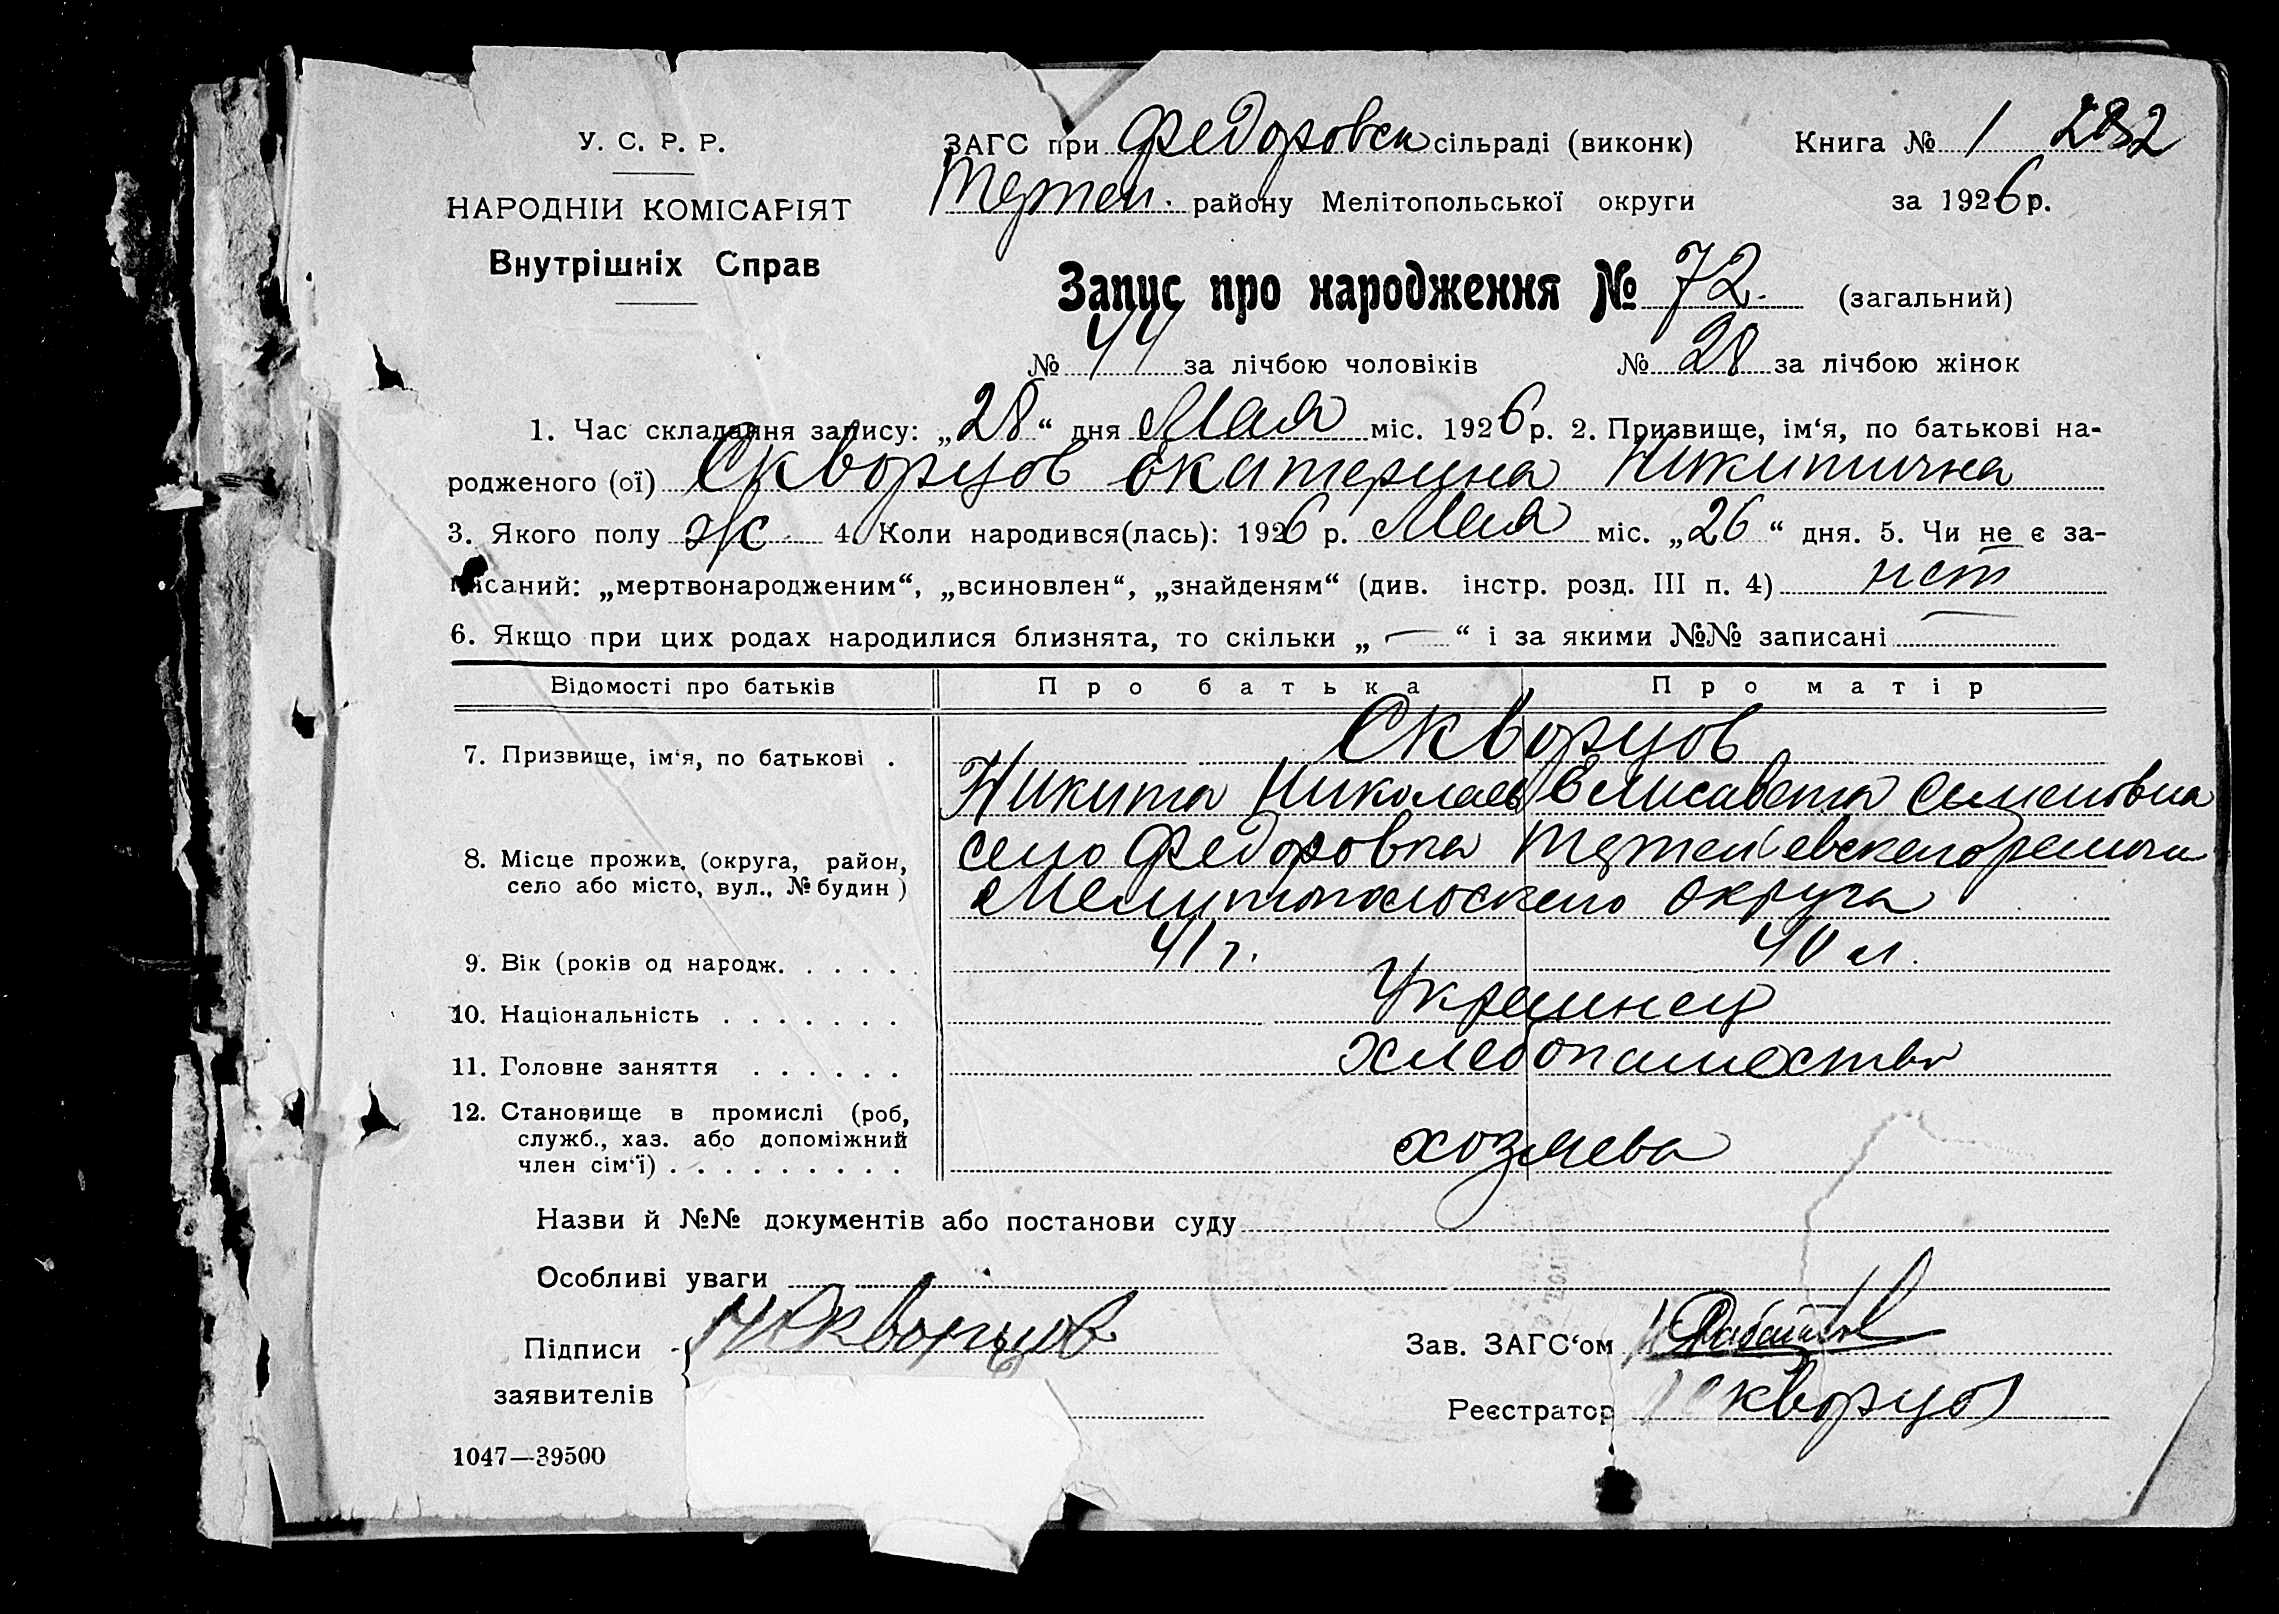 У. С. Р. Р.
НАРОДНІЙ КОМІСАРІЯТ
Внутрішніх Справ
ЗАГС при Федоровск сільраді (виконк) Книга № 1 282
району Мелітопольської округи за 1926 р.
Запис про народження № 72. (загальний)
№ 44 за лічбою чоловіків № 28 за лічбою жінок
1. Час складання запису: „28“ дня Мая міс. 1926 р. 2. Призвище, ім‘я, по батькові на-
родженого (ої) Скворцов Екатерина Никитична
3. Якого полу ж 4. Коли народився(лась): 1926 р. Мая міс. „26“ дня. 5. Чи не є за-
писаний: „мертвонародженим“, „всиновлен“, „знайденям“ (див. інстр. розд. III п. 4) нет
6. Якщо при цих родах народилися близнята, то скільки „ — “ і за якими №№ записані —
Відомості про батьків Про батька Про матір
7. Призвище, ім‘я, по батькові . Скворцов
Никита Николаев Елисавета Семеновна
8. Місце прожив. (округа, район, село або місто, вул., № будин ) село Федоровка
Мелитопольского округа
9. Вік (років од народж. . . . . . 41 г. 40 л.
10. Національність . . . . . . . Украинец
11. Головне заняття . . . . . . хлебопашество
12. Становище в промислі (роб,
служб., хаз. або допоміжний
член сім‘ї) . . . . . . . . . хозяева
Назви й №№ документів або постанови суду
Особливі уваги
Підписи Н Скворцов Зав. ЗАГС‘ом
заявителів Реєстратор Скворцов
1047—39500